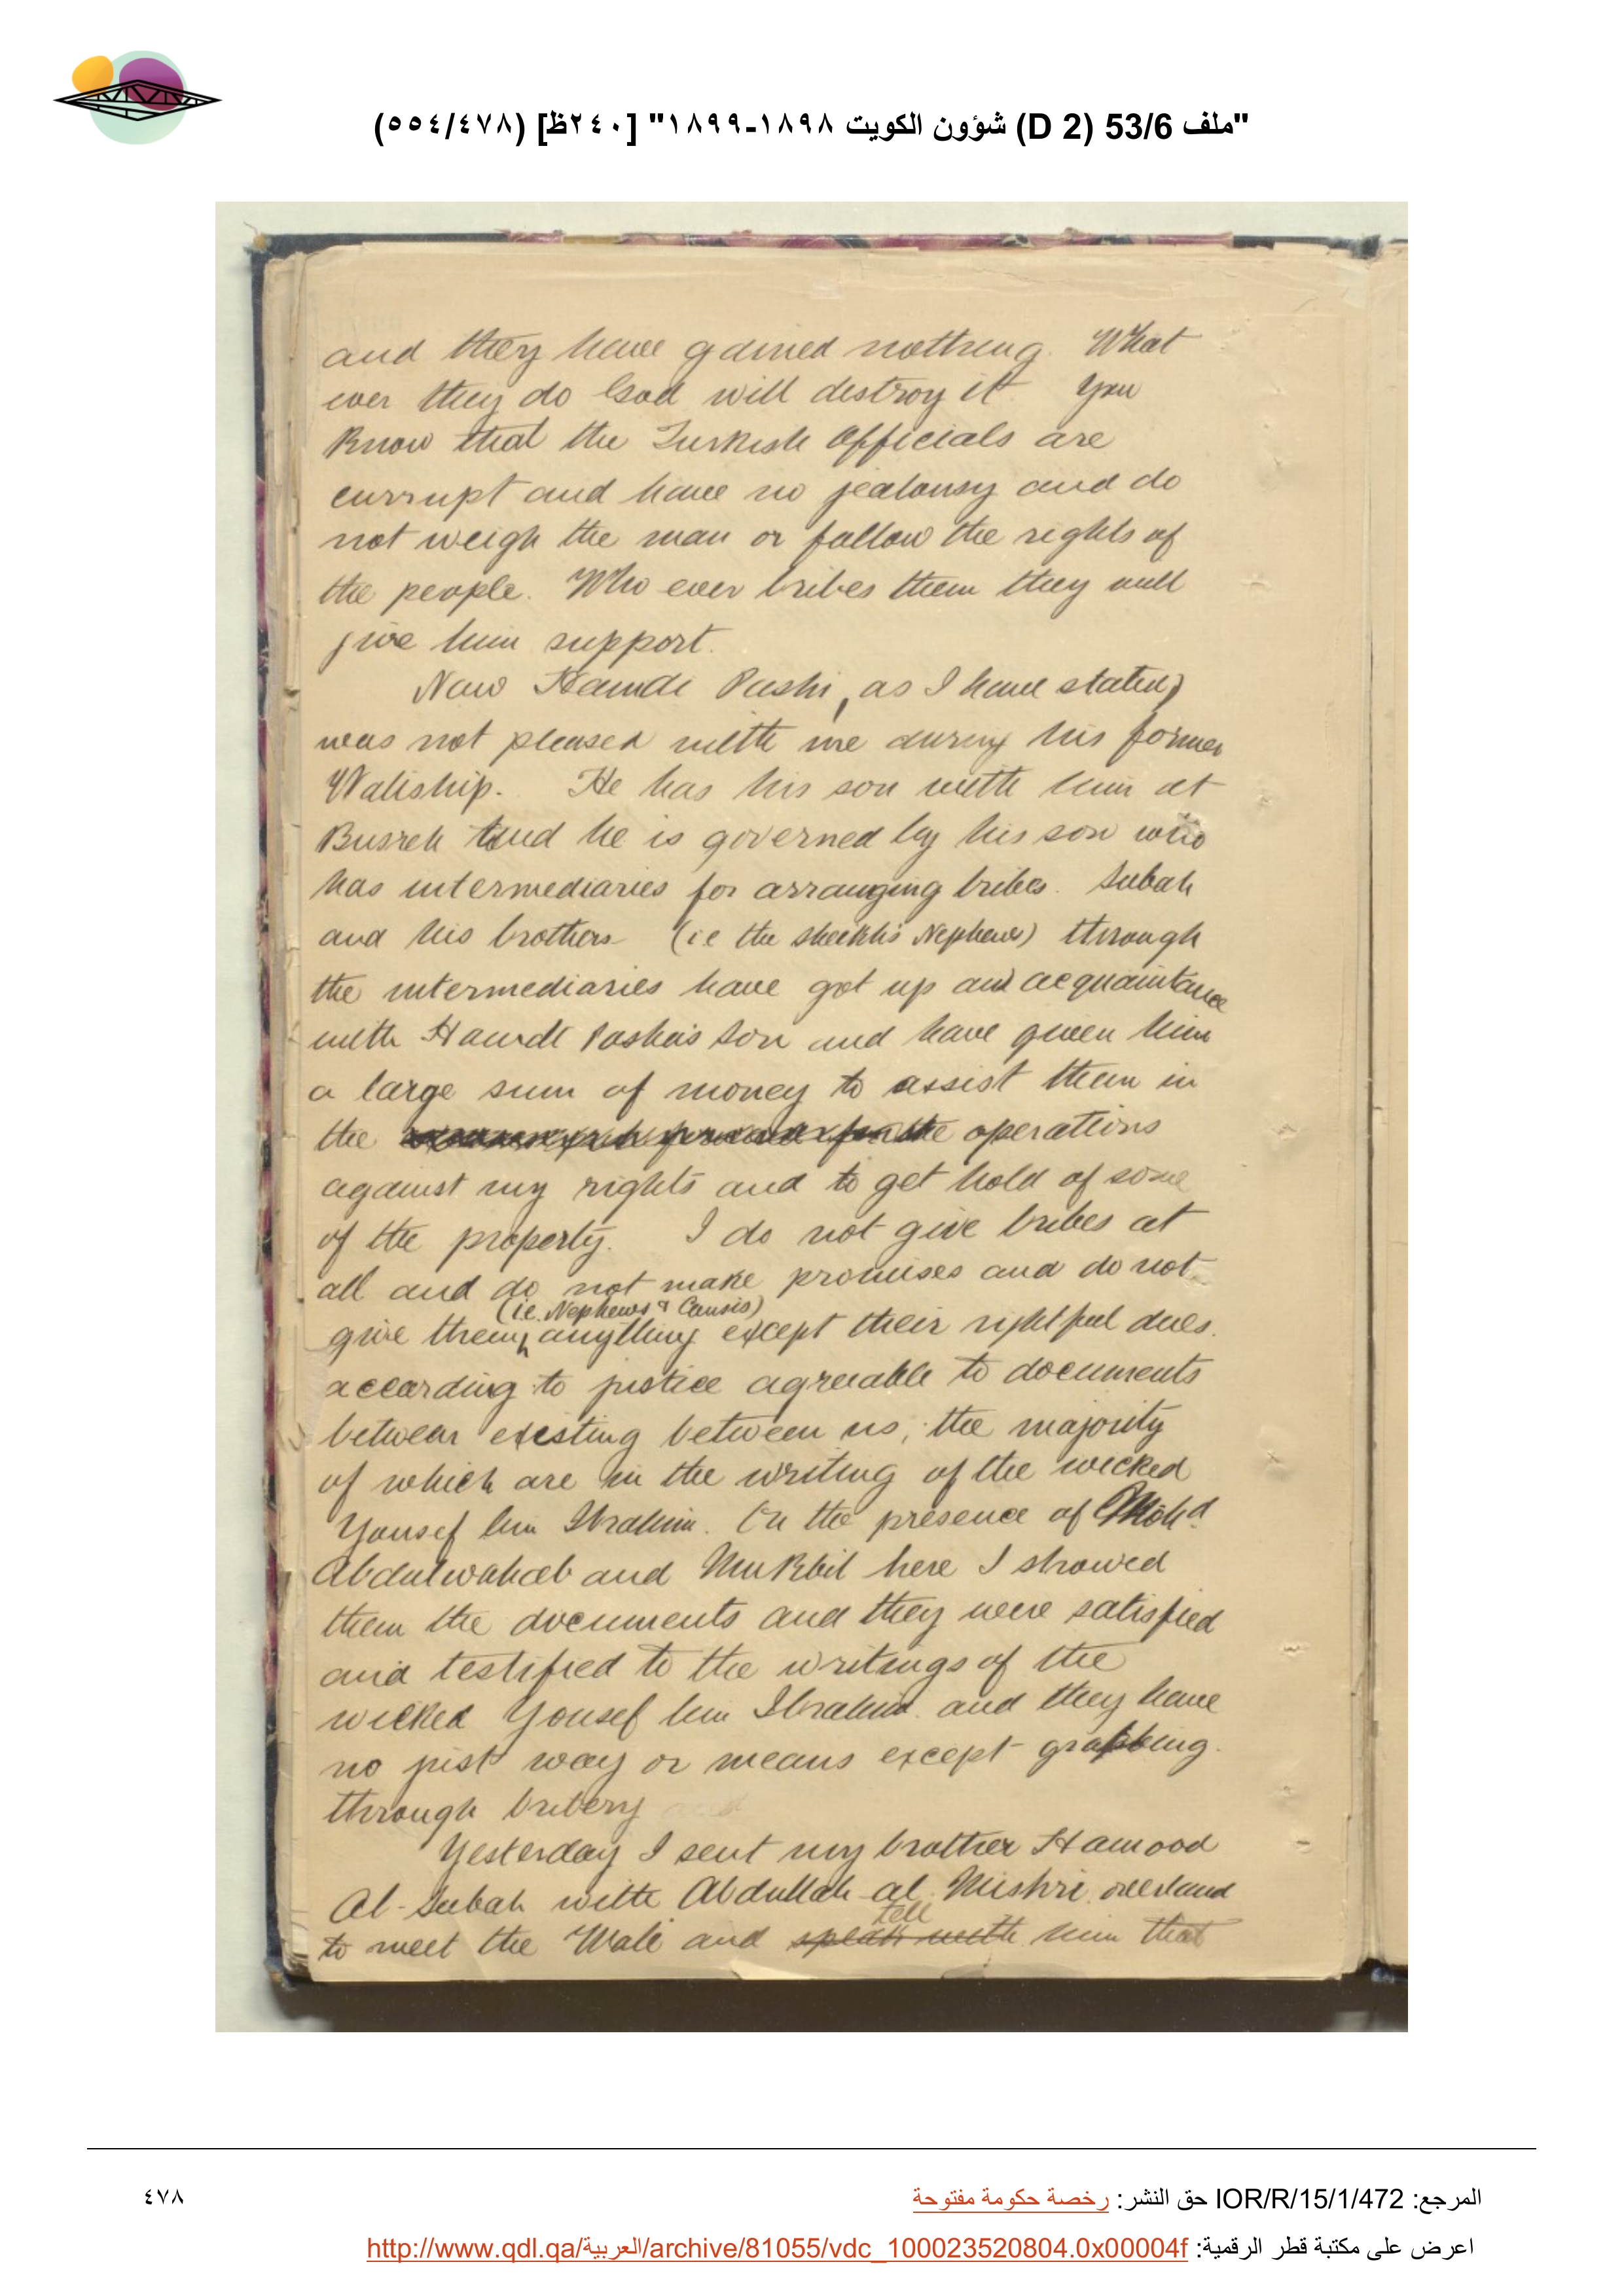 "ملف 53/6 (D 2) شؤون الكويت ١٨٩٨-١٨٩٩" [٢٤٠ظ] (٥٥٤/٤٧٨)
and they have gained nothing. What
ever they do God will destroy it. You
Know that the Turkish Officials are
currupt and have no jealousy and do
not weigh the man or follow the rights of
the people. Who ever bribes them they will
give him support.
Now Hamdi Pashi, as I have stated,
was not pleased with me during his former
Waliship. He has his son with him at
Busreh and he is governed by his son who
has intermediaries for arranging bribes. Subah
and his brothers (i.e the sheikh's Nephews) through
the intermediaries have got up and acquaintance
with Hamdi Pasha's son and have given him
a large sum of money to assist them in
the operations
against my rights and to get hold of some
of the property. I do not give bribes at
all and do not make promises and do not
(i.e. Nephews & Cousis)
give them anything except their rightfuel dues.
according to justice agreeable to documents
between existing between us, the majority
of which are in the writing of the wicked
Yousef bin Ibrahim. In the presence of Mohd.
Abdulwahab and Mukbil here I showed
them the documents and they were satisfied
and testified to the writings of the
wicked Yousef bin Ibrahim and they have
no just way or means except grabbing.
through bribery
Yesterday I sent my brother Hamood
Al-Subah with Abdullah al Mishri overland
tell
to meet the Wali and speak with him that
المرجع: IOR/R/15/1/472 حق النشر: رخصة حكومة مفتوحة
٤٧٨
اعرض على مكتبة قطر الرقمية: http://www.qdl.qa/العربية/archive/81055/vdc_100023520804.0x00004f